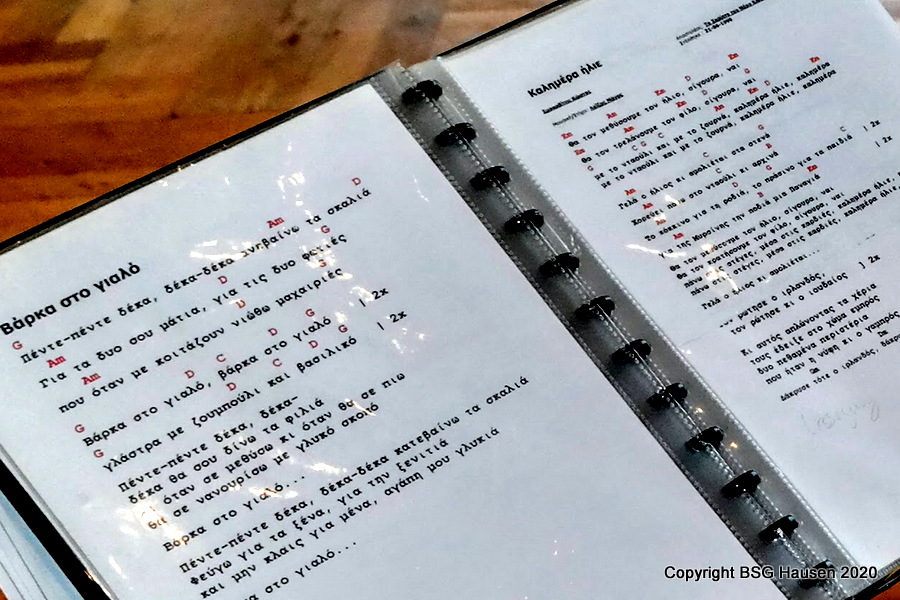 Βάρκα στο γιαλό
D
Am
G Πέντε-πέντε δέκα, δέκα-δέκα ανεβαίνω τα σκαλιά
D G
Am Για τα δυο σου μάτια, για τις δυο φωτιές
D G
Am που όταν με κοιτάζουν νιώθω μαχαιριές
D C D G
G Βάρκα στο γιαλό, βάρκα στο γιαλό | 2x
D C D G
G γλάστρα με ζουμπούλι και βασιλικό | 2x
Πέντε-πέντε δέκα, δέκα-
δέκα θα σου δίνω τα φιλιά
όταν σε μεθύσω κι όταν θα σε πιω
θα σε νανουρίσω με γλυκό σκοπό
Βάρκα στο γιαλό...
Πέντε-πέντε δέκα, δέκα-δέκα κατεβαίνω τα σκαλιά
φεύγω για τα ξένα, για την ξενιτιά
και μην κλαις για μένα, αγάπη μου γλυκιά
στο γιαλό...
Καλημέρα ήλιε
21-06-1998
Em Am Em D Em
Θα τον μεθύσουμε τον ήλιο, σίγουρα, ναι
Em Am Em D
Θα τον τρελάνουμε τον ήλιο, σίγουρα, ναι
με το νταούλι και με το ζουρνά, καλημέρα ήλιε, καλημέρα
με το νταούλι και με το ζουρνά, καλημέρα ήλιε, καλημέρα
Am C G
Γελά ο ήλιος κι αμολιέται στα στενά
Am C
Χορεύει με στο νταούλι και αρχινά
Am D G C
Το κόκκινο για τη ροδιά, το πράσινο για τα παιδιά | 2x
Am Em
Για της Μυρσίνης την ποδιά μια Παναγιά | 2x
Θα τον μεθύσουμε τον ήλιο, σίγουρα, ναι
Θα τον κρατήσουμε τον ήλιο, σίγουρα, ναι
πάνω στις στέγες, μέσα στις καρδιές, καλημέρα ήλιε,
πάνω στις στέγες, μέσα στις καρδιές, καλημέρα ήλιε,
Γελά ο ήλιος κι αμολιέται...
τον ρώτησε κι ο ιρλανδός,
τον ρώτησε κι ο ιουδαίος ] 2x
Κι αυτός απλώνοντας τα χέρια
τους έδειξε στο χώμα εμπρός
δυο πεθαμένα περιστέρια
που ήταν η νύφη κι ο γαμπρός
Dm
Gm
Δάκρυσε τότε ο ιρλανδός,
Copyright BSG Hausen 2020